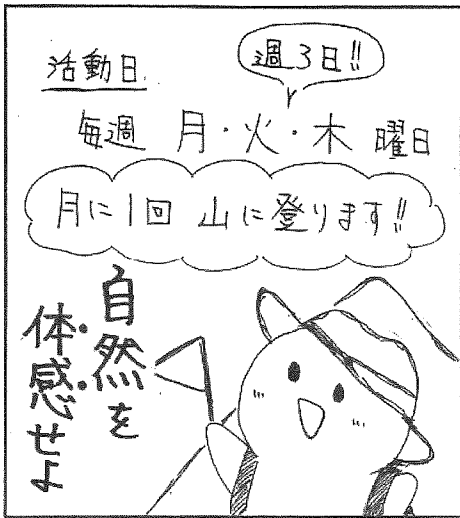 活動日
週3日!!
毎週 月・火・木 曜日
月に1回 山に登ります!!
自然を
体感せよ